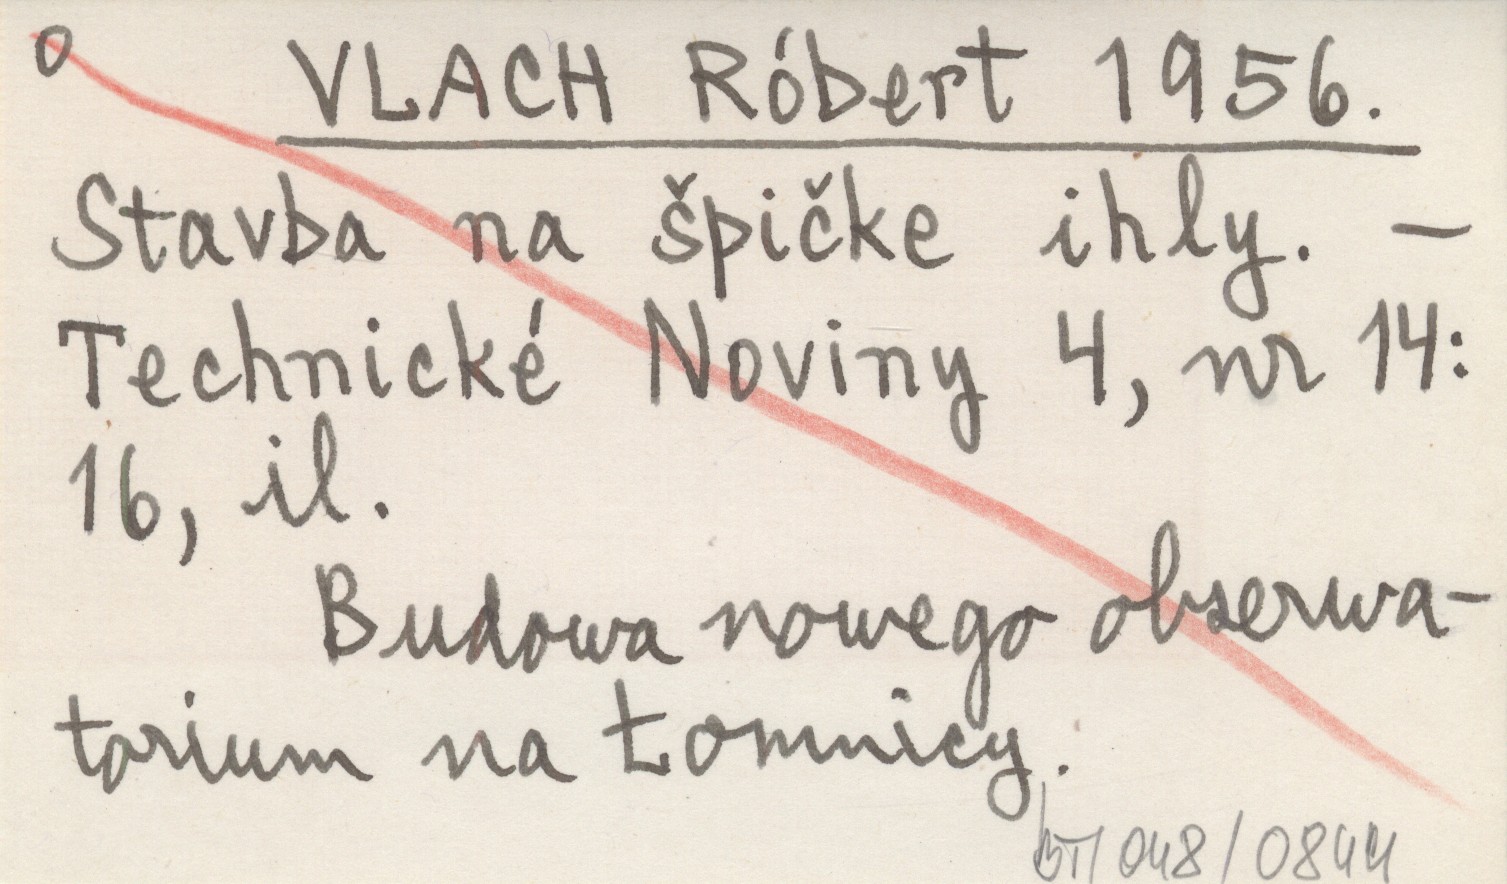 O VLACH Róbert 1956.
Stavba na špičke ihly. –
Technické Noviny 4, nr 14:
16, il.
Budowa nowego obserwa-
torium na Łomnicy.
048/0844